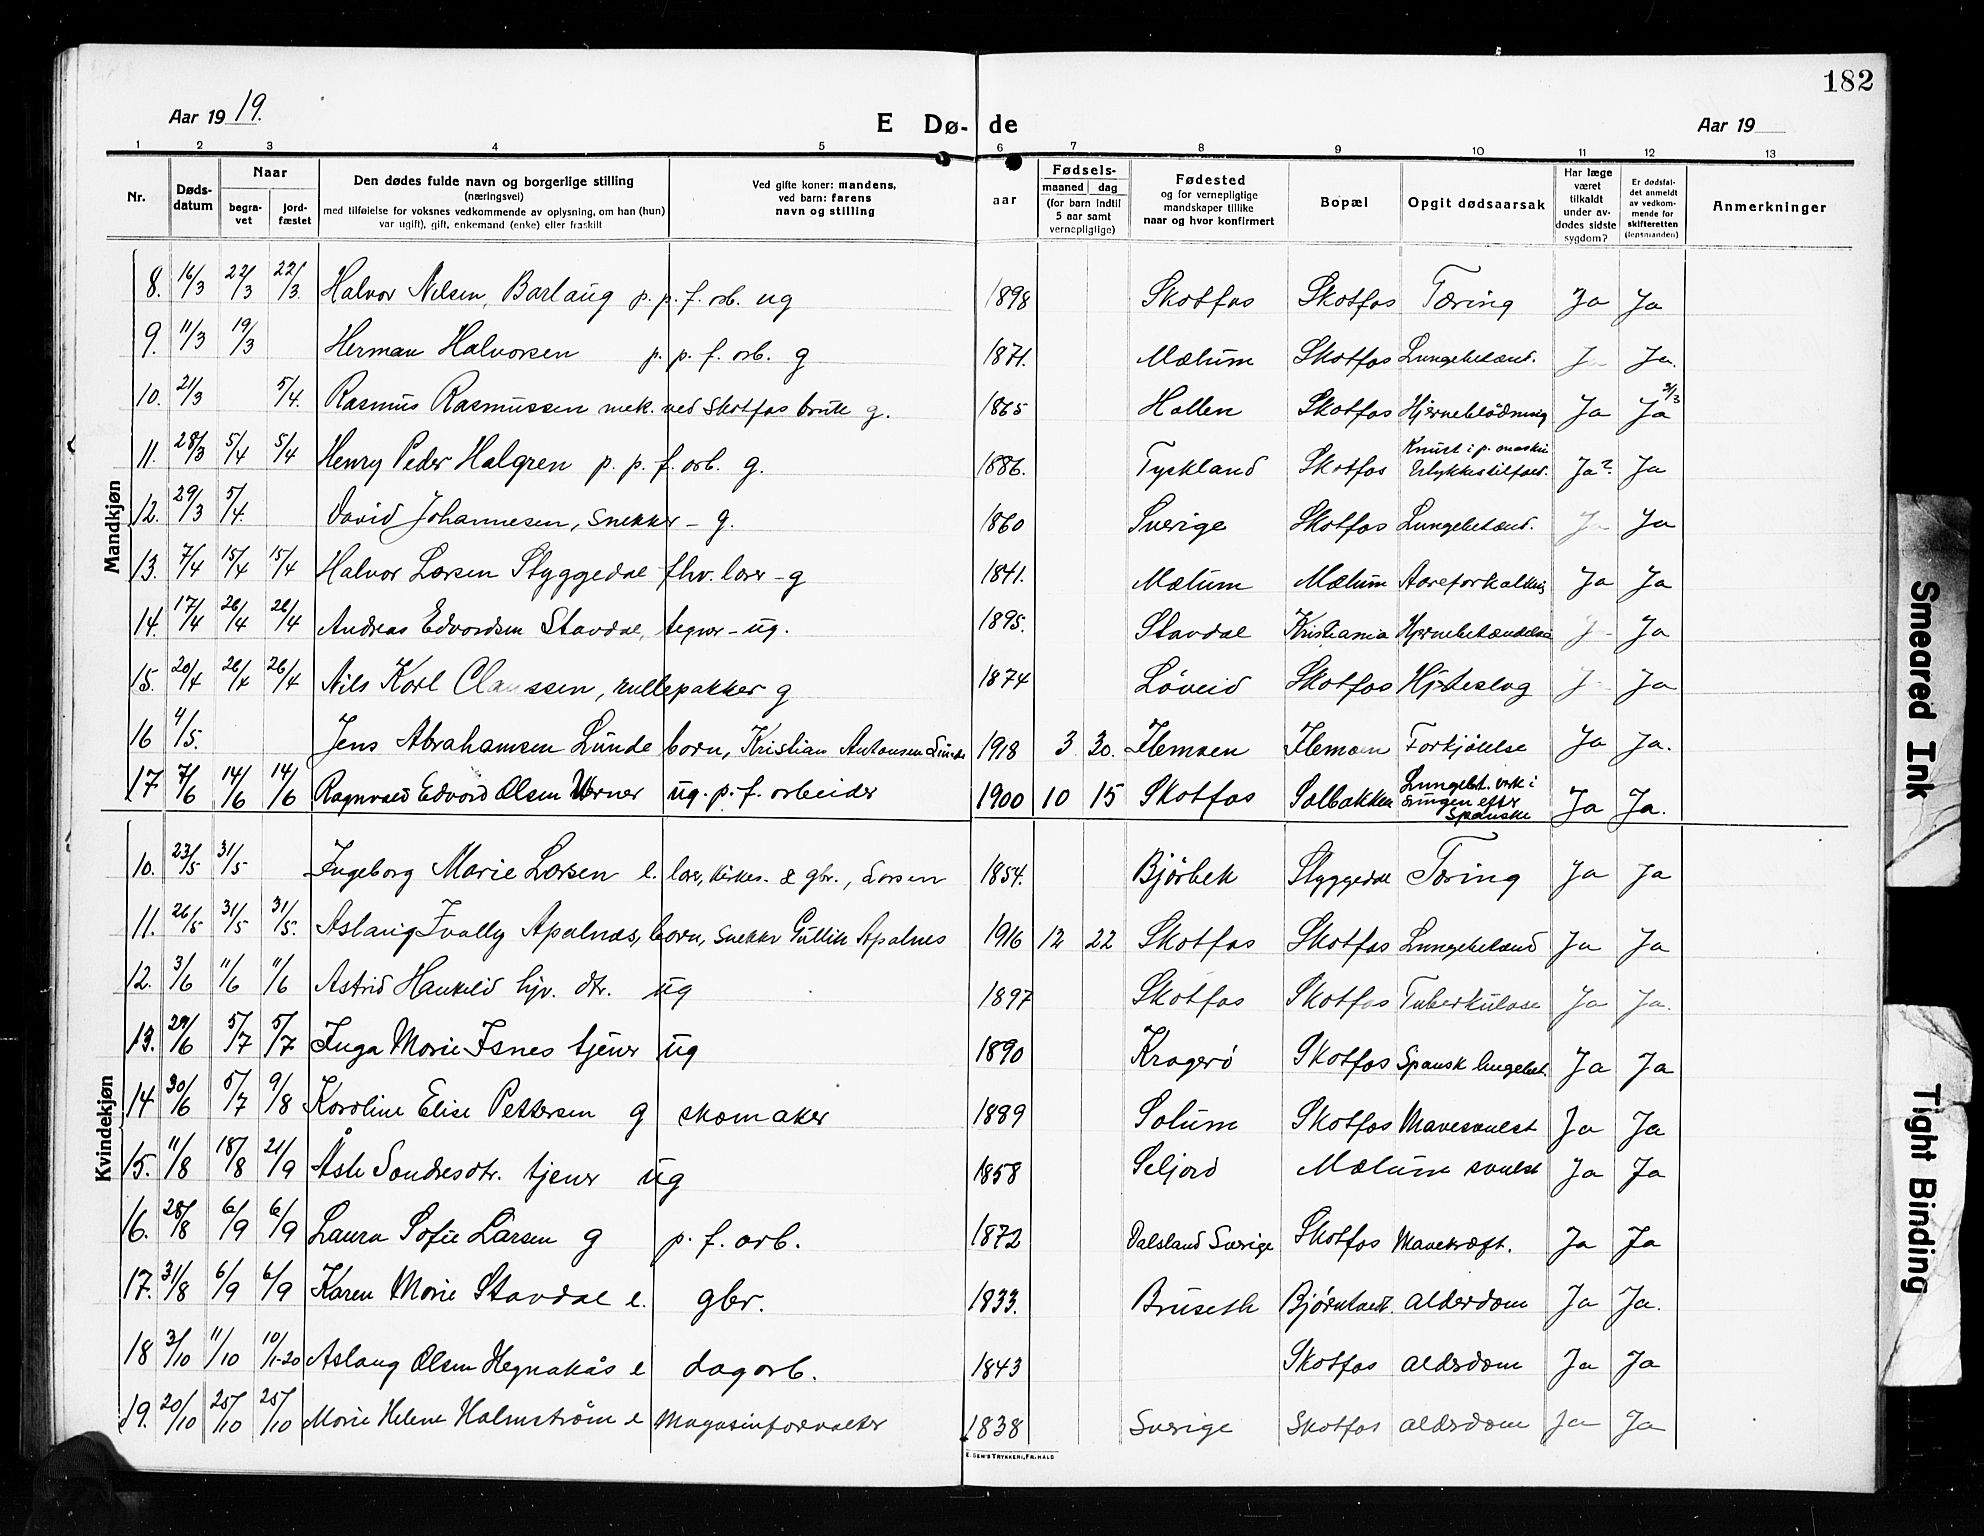 182
Aar 19 19.
E Dø- de
Aar 19
1 2 3 4 5 6 7 8 9 10 11 12 13
Nr.
Døds-
datum
Naar
begra-
vet
jord-
fæstet
Den dødes fulde navn og borgerlige stilling
(næringsvei)
med tilføielse for voksnes vedkommende av oplysning, om han (hun)
var ugift), gift, enkemand (enke) eller fraskilt
Ved gifte koner: mandens,
ved barn: farens
navn og stilling
aar
Fødsels-
maaned dag
(for barn indtil
5 aar samt
vernepligtige)
Fødested
og for vernepligtige
mandskaper tillike
naar og hvor konfirmert
Bopæl
Opgit dødsaarsak
Har læge
været
tilkaldt
under av-
dødes sidste
sygdom?
Er dødsfal-
det anmeldt
av vedkom-
mende for
skifteretten
(lensmanden)
Anmerkninger
Mandkjøn
8. 16/3 22/3 22/3. Halvor Nilsen, Barlaug p. p. f. arb. ug 1898 Skotfos Skotfos Tæring Ja Ja
9. 11/3 19/3 Herman Halvorsen p. p. f. arb. g 1871. Mælum Skotfos Lungebetænd. J Ja.
10. 21/3 5/4. Rasmus Rasmussen mek. ved Skotfos bruk g. 1865 Hollen Skotfos Hjerneblødning Ja Ja 3/13
11. 28/3 5/4 5/4 Henry Peder Halgren p. p. f. arb. g. 1886. Tyskland Skotfos Knust i p. maskin Ulykkestilfæld. Ja? Ja
12. 29/3 5/4. David Johannesen, snekker - g. 1860 Sverige Skotfos Lungebetænd. Ja Ja
13. 7/4 15/4 15/4 Halvor Larsen Styggedal fhv. lærer - g 1841. Mælum Mælum Aareforkalkning Ja Ja
14. 17/4 26/4 26/4 Andreas Edvardsen Stavdal, tegner - ug. 1895. Stavdal Kristiania Hjernebetændelse J Ja
15. 20/4 26/4 26/4 Nils Karl Claussen, rullepakker g 1874 Løveid Skotfos Hjerteslag J Ja
16 4/5. Jens Abrahamsen Lunde barn, Kristian Antonsen Lunde 1918 3 30. Klemoen Klemoen Forkjølelse Ja Ja.
17 7/6 14/6 14/6 Ragnvald Edvard Olsen Werner ug. p. f. arbeider 1900 10 15 Skotfos Solbakken Lungebet. verk i lungen efter Spanske Ja Ja.
Kvindekjøn
10. 23/5 31/5 Ingeborg Marie Larsen e. lærer, kirkes. & gbr., Larsen 1854. Bjørbek Styggedal Tæring Ja Ja
11. 26/5 31/5 31/5. Aslaug Ivally Apalnes, barn, snekker Gullik Apalnes 1916 12 22 Skotfos Skotfos Lungebetænd Ja Ja
12. 3/6 11/6 11/6 Astrid Haukelid hjv. dtr. ug 1897 Skotfos Skotfos Tuberkulose Ja Ja.
13. 29/6 5/7 5/7 Inga Marie Isnes tjener ug 1890 Kragerø Skotfos Spansk lungebet. Ja Ja
14 30/6 5/7 9/8 Karoline Elise Pettersen g skomaker 1889 Solum Skotfos Mavesvulst Ja Ja
15. 11/8 18/8 21/9 Åsle Sondresdtr. tjener ug 1858 Seljord Mælum svulst Ja Ja
16. 28/8 6/9 6/9 Laura Sofie Larsen g p. f. arb. 1872 Dalsland Sverige Skotfos Mavekræft. Ja Ja
17. 31/8 6/9 6/9 Karen Marie Stavdal e. gbr. 1833. Bruseth Bjørntvedt. Alderdom Ja Ja.
18 3/10 11/10 10/1-20 Aslaug Olsen Hegnakås e dagarb. 1843 Skotfos Alderdom Ja Ja
19. 20/10 25/10 25/10 Marie Helene Halmstrøm e Magasinforvalter 1838 Sverige Skotfos Alderdom Ja Ja
E. SEM'S TRYKKERI, FR.HALD
Smeared Ink
Tight Binding